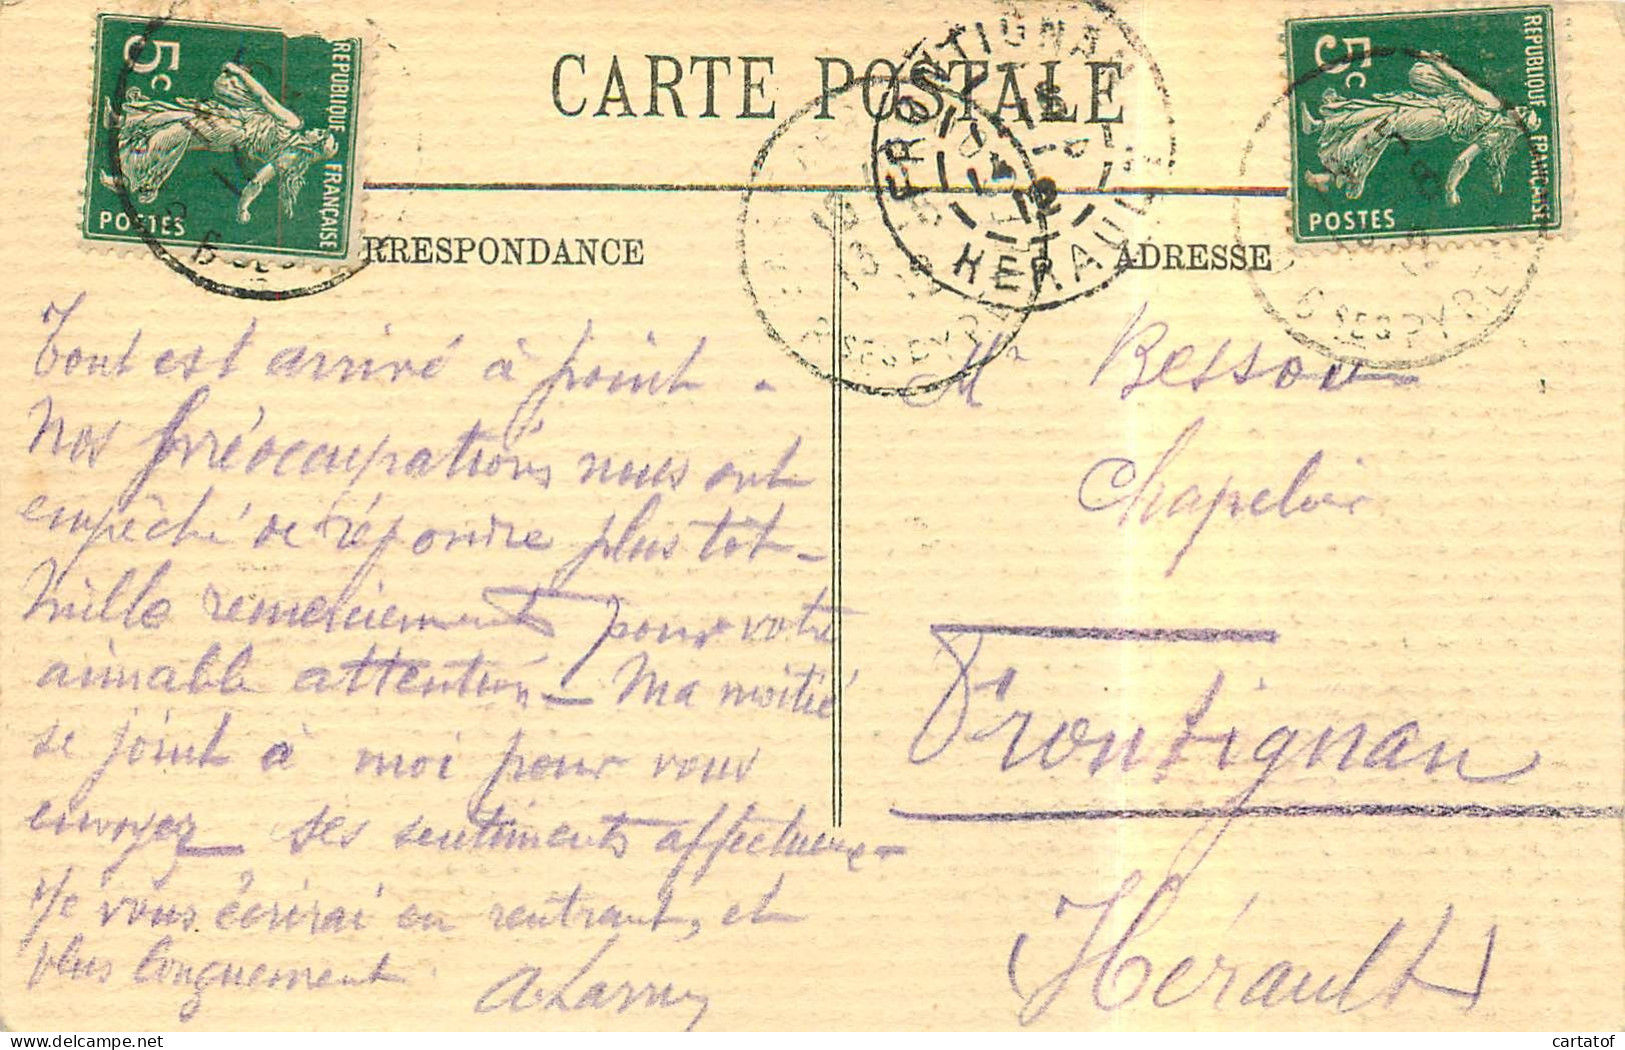 CARTE POSTALE
RRESPONDANCE
ADRESSE
5c
REPUBLIQUE FRANÇAISE
POSTES
5c
REPUBLIQUE FRANÇAISE
POSTES
FRONTIGNAN
HERAULT
Tout est arrivé à point -
Nos préoccupations nous ont
empêché de répondre plus tôt -
Mille remerciements pour votre
aimable attention - Ma moitié
se joint à moi pour vous
envoyez ses sentiments affectueux -
Je vous écrirai en rentrant, et
plus longuement
Mr Besson
Chapelier
Frontignan
(Hérault)
cartatof